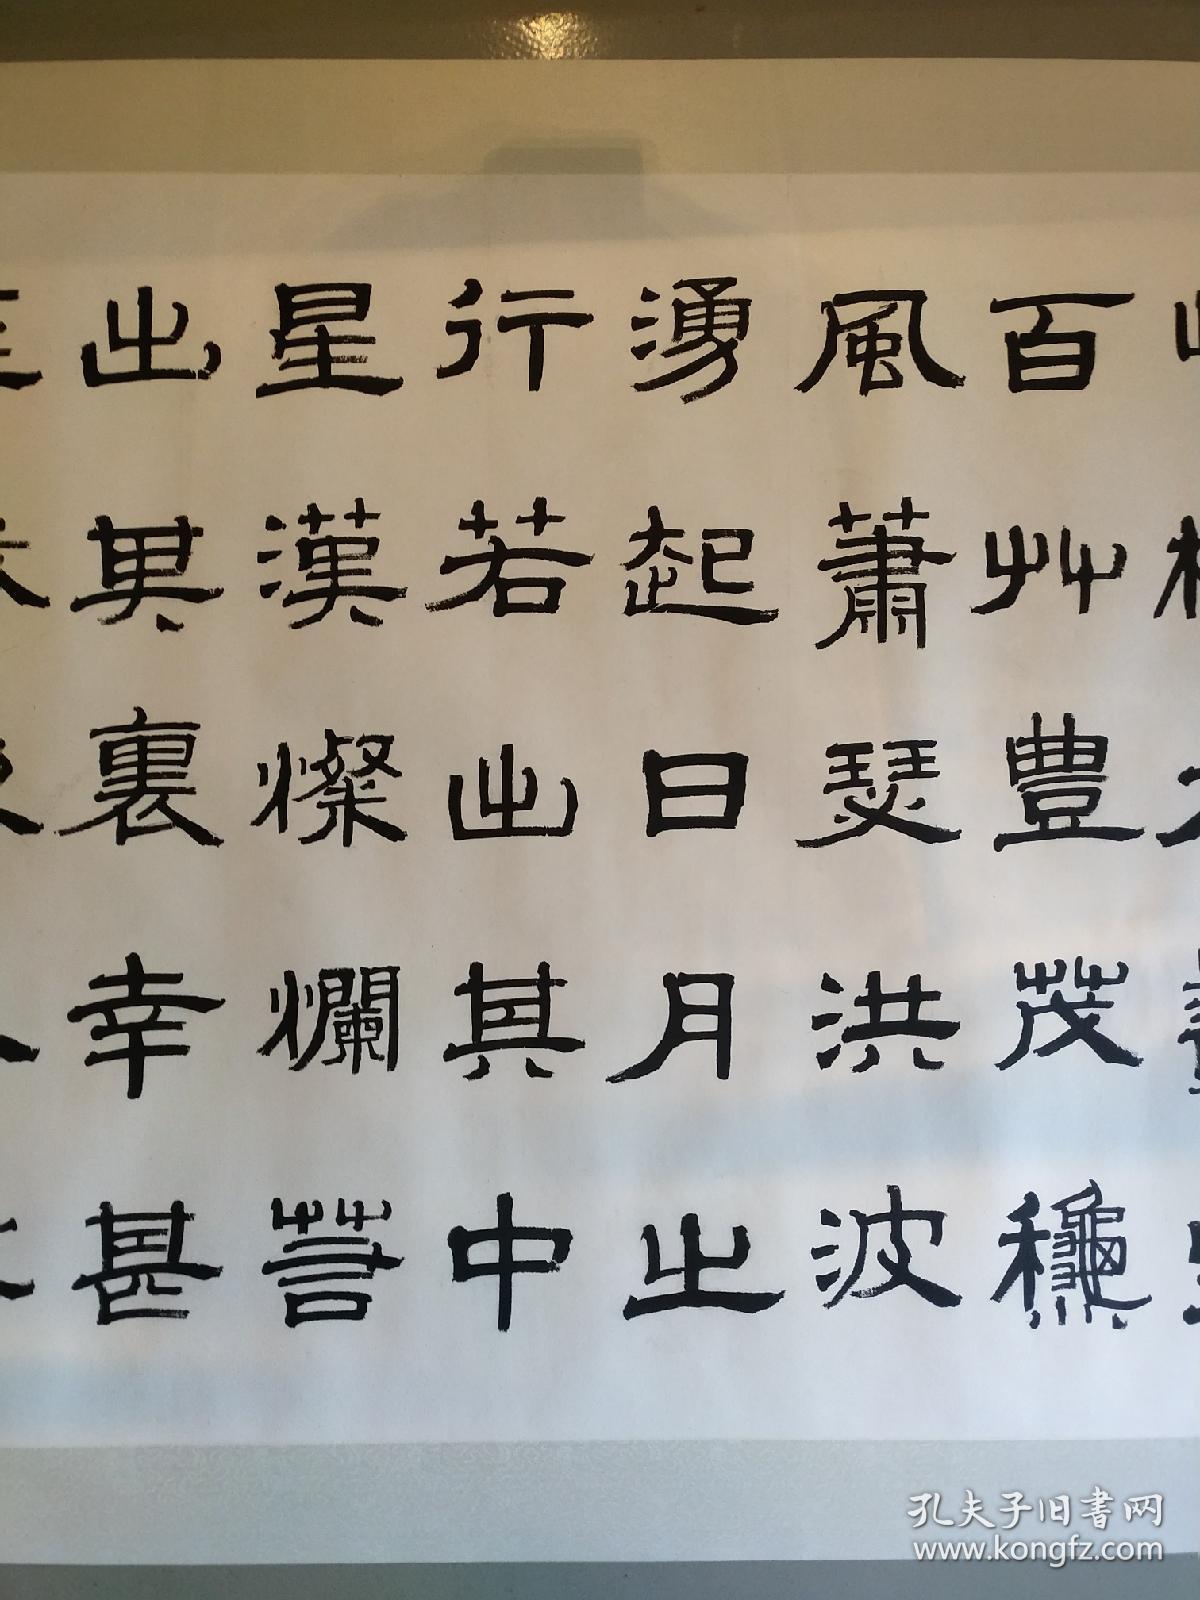 百艸豐茂龝
風蕭瑟洪波
湧起日月之
行若出其中
星漢燦爛
出其裏幸甚
孔夫子旧书网
www.kongfz.com